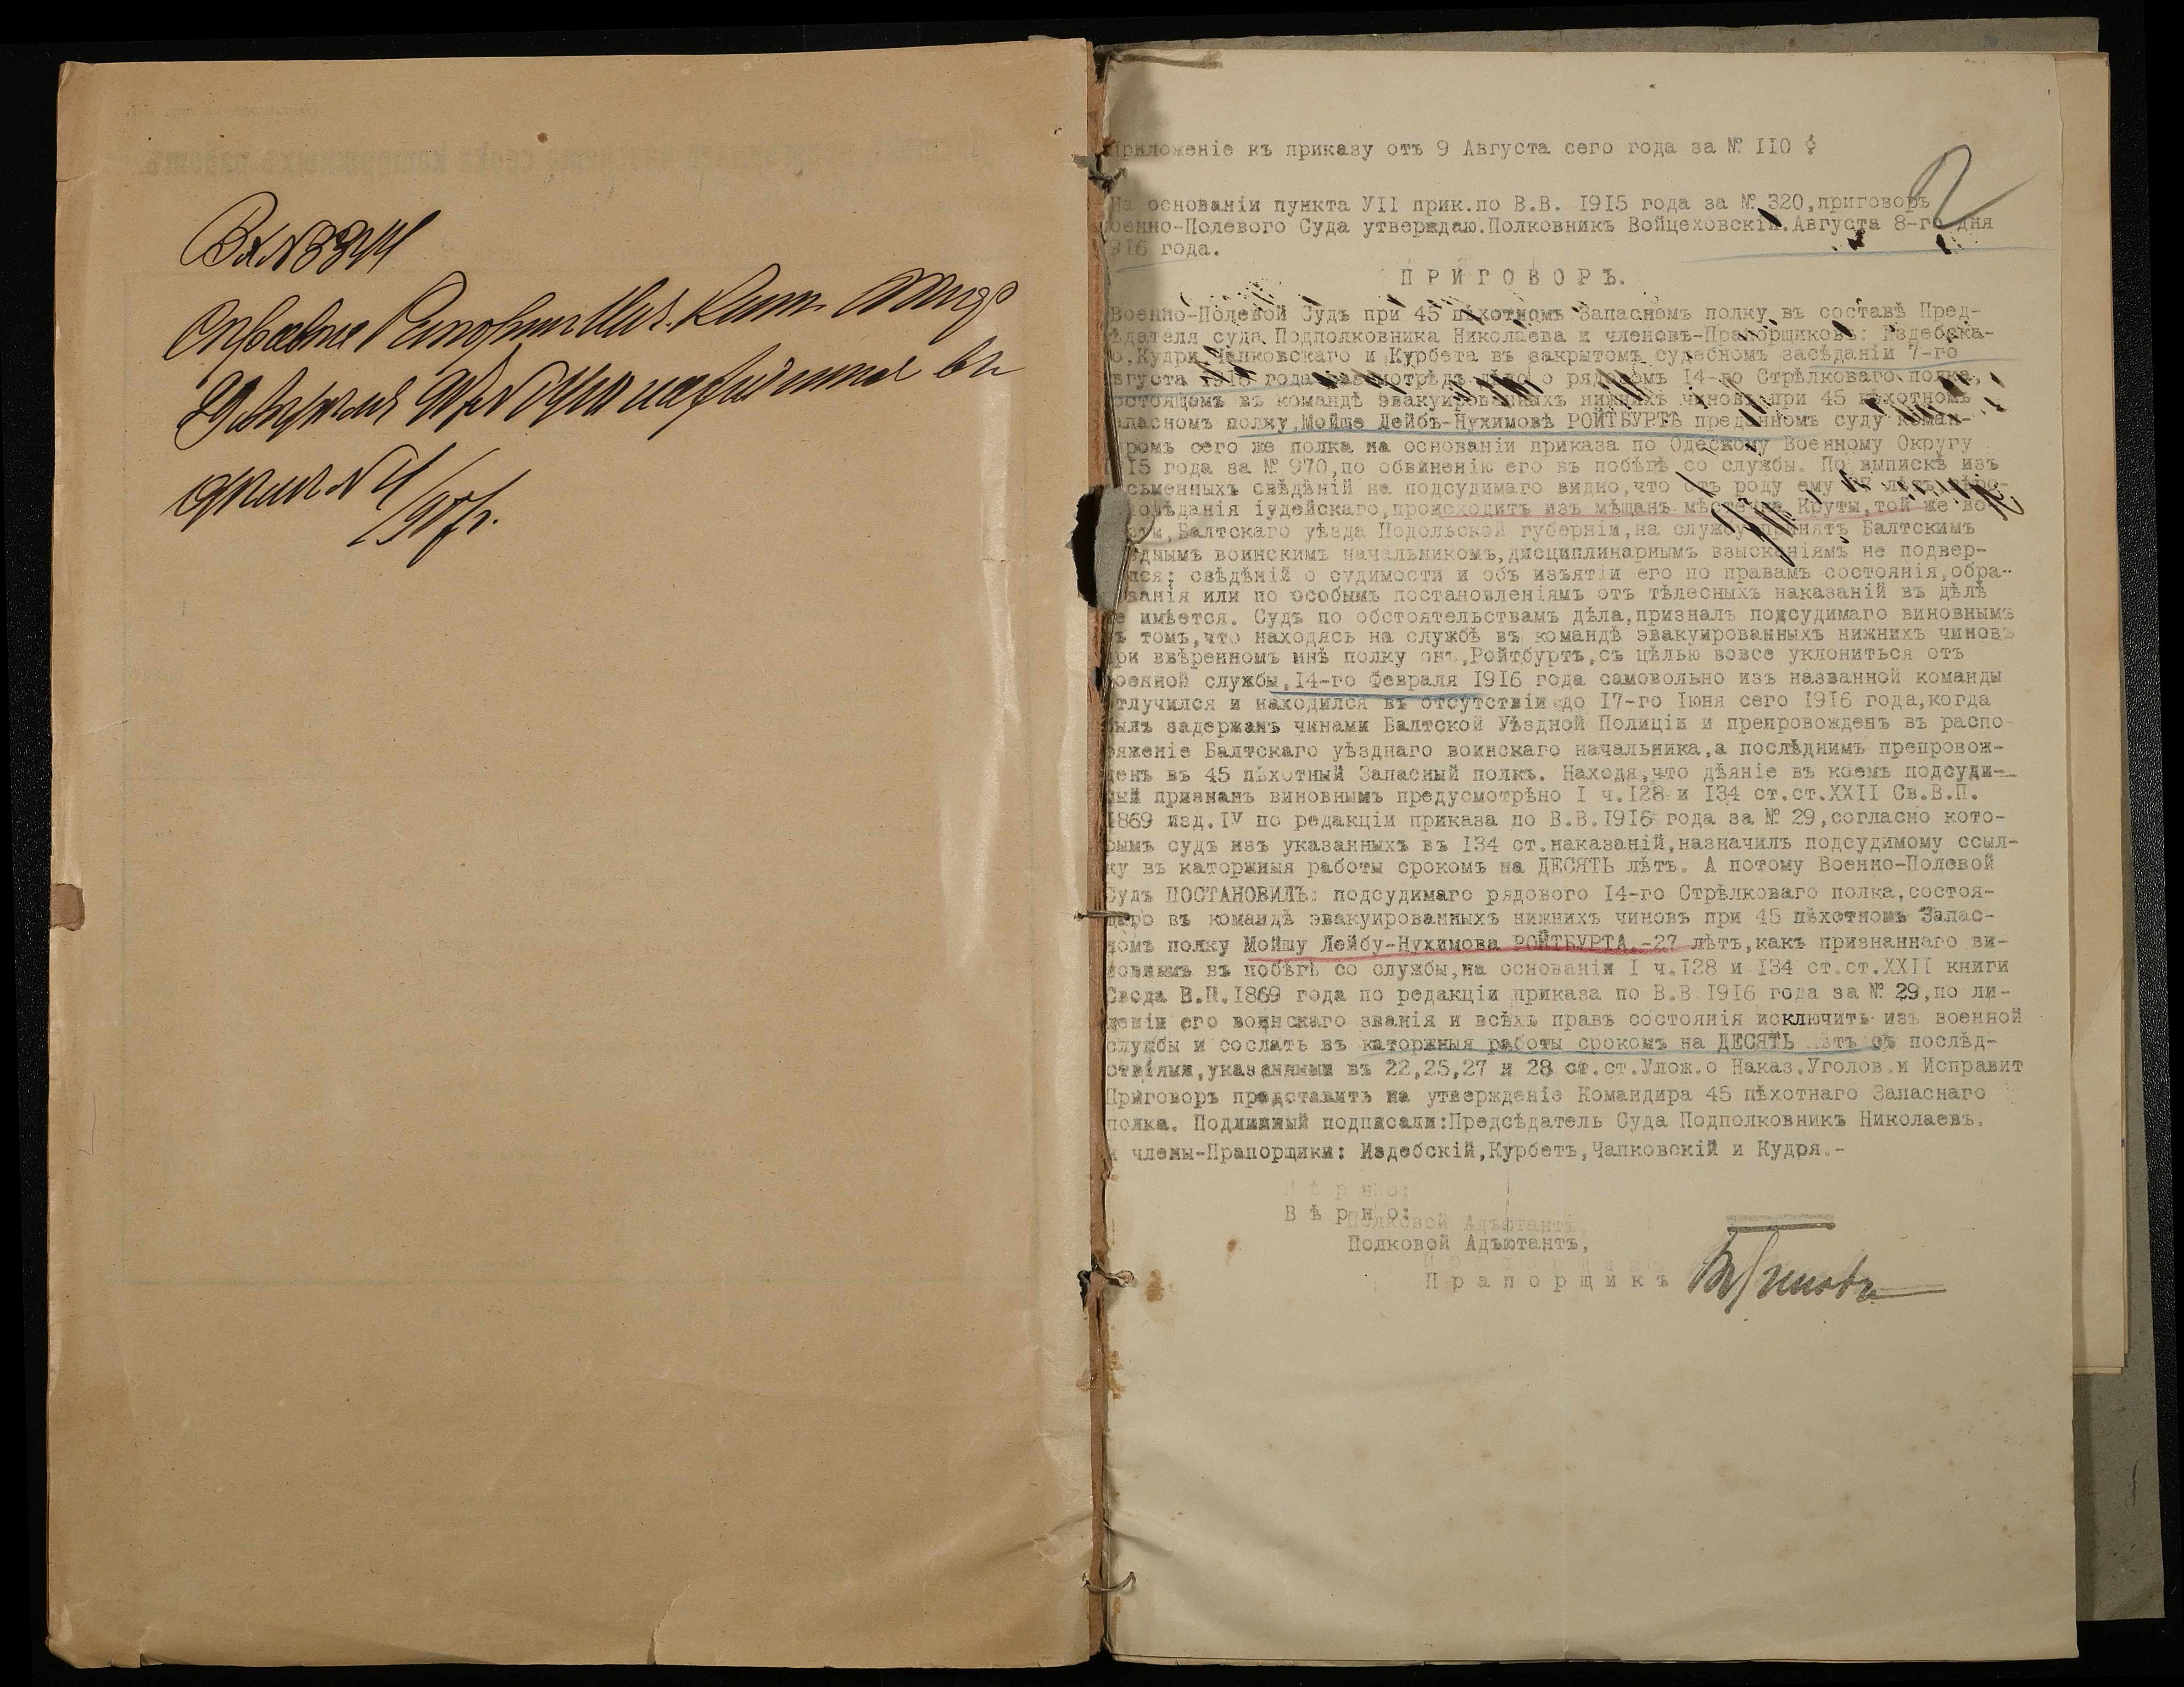 Вх № 3344
Приложеніе къ приказу отъ 9 Августа сего года за № II0
2
На основаніи пункта УІІ прик.по В.В. I9I5 года за № 320,приговоръ
оенно-Полевого Суда утверждаю.Полковникъ Войцеховскій.Августа 8-го дня
9I6 года.
ПРИГОВОРЪ.
Военно-Полевой Судъ при 45 пѣхотномъ Запасномъ полку въ составѣ Пред-
ѣдателя суда Подполковника Николаева и членовъ-Прапорщиковъ: Издебска-
о,Кудри,Чапковскаго и Курбета въ закрытомъ судебномъ засѣданіи 7-го
вгуста I9I6 года разсмотрѣлъ дѣло о рядовомъ I4-го Стрѣлковаго полка,
остоящемъ въ командѣ эвакуированныхъ нижнихъ чиновъ при 45 пѣхотномъ
апасномъ полку,Мойше Лейбъ-Нухимовѣ РОЙТБУРТѢ преданномъ суду коман-
иромъ сего же полка на основаніи приказа по Одесскому Военному Округу
9I5 года за № 970,по обвиненію его въ побѣгѣ со службы. По выпискѣ изъ
исьменныхъ свѣдѣній на подсудимаго видно,что отъ роду ему 27 лѣтъ,вѣро-
повѣданія іудейскаго,происходитъ изъ мѣщанъ мѣстечка Круты,той же во-
ости,Балтскаго уѣзда Подольской губерніи,на службу принятъ Балтскимъ
ѣзднымъ воинскимъ начальникомъ,дисциплинарнымъ взысканіямъ не подвер-
ался; свѣдѣній о судимости и объ изъятіи его по правамъ состоянія,обра-
ованія или по особымъ постановленіямъ отъ тѣлесныхъ наказаній въ дѣлѣ
не имѣется. Судъ по обстоятельствамъ дѣла,призналъ подсудимаго виновнымъ
въ томъ,что находясь на службѣ въ командѣ эвакуированныхъ нижнихъ чиновъ
при ввѣренномъ мнѣ полку онъ,Ройтбуртъ,съ цѣлью вовсе уклониться отъ
военной службы,I4-го Февраля I9I6 года самовольно изъ названной команды
отлучился и находился въ отсутствіи до I7-го Іюня сего I9I6 года,когда
былъ задержанъ чинами Балтской Уѣздной Полиціи и препровожденъ въ распо-
ряженіе Балтскаго уѣзднаго воинскаго начальника,а послѣднимъ препровож-
денъ въ 45 пѣхотный Запасный полкъ. Находя,что дѣяніе въ коемъ подсуди-
мый признанъ виновнымъ предусмотрѣно I ч.I28 и I34 ст.ст.XXII Св.В.П.
I869 изд.IV по редакціи приказа по В.В.I9I6 года за № 29,согласно кото-
рымъ судъ изъ указанныхъ въ I34 ст.наказаній,назначилъ подсудимому ссыл-
ку въ каторжныя работы срокомъ на ДЕСЯТЬ лѣтъ. А потому Военно-Полевой
Судъ ПОСТАНОВИЛЪ: подсудимаго рядового I4-го Стрѣлковаго полка,состоя-
щаго въ командѣ эвакуированныхъ нижнихъ чиновъ при 45 пѣхотномъ Запас-
номъ полку Мойшу Лейбу-Нухимова РОЙТБУРТА.-27 лѣтъ,какъ признаннаго ви-
новнымъ въ побѣгѣ со службы,на основаніи I ч.I28 и I34 ст.ст.XXII книги
Свода В.П.I869 года по редакціи приказа по В.В I9I6 года за № 29,по ли-
шеніи его воинскаго званія и всѣхъ правъ состоянія исключить изъ военной
службы и сослать въ каторжныя работы срокомъ на ДЕСЯТЬ лѣтъ съ послѣд-
ствіями,указанными въ 22,25,27 и 28 ст.ст.Улож.о Наказ.Уголов.и Исправит
Приговоръ представить на утвержденіе Командира 45 пѣхотнаго Запаснаго
полка. Подлинный подписали:Предсѣдатель Суда Подполковникъ Николаевъ.
и члены-Прапорщики: Издебскій,Курбетъ,Чапковскій и Кудря.-
Вѣрно:
Полковой Адъютантъ,
Прапорщикъ